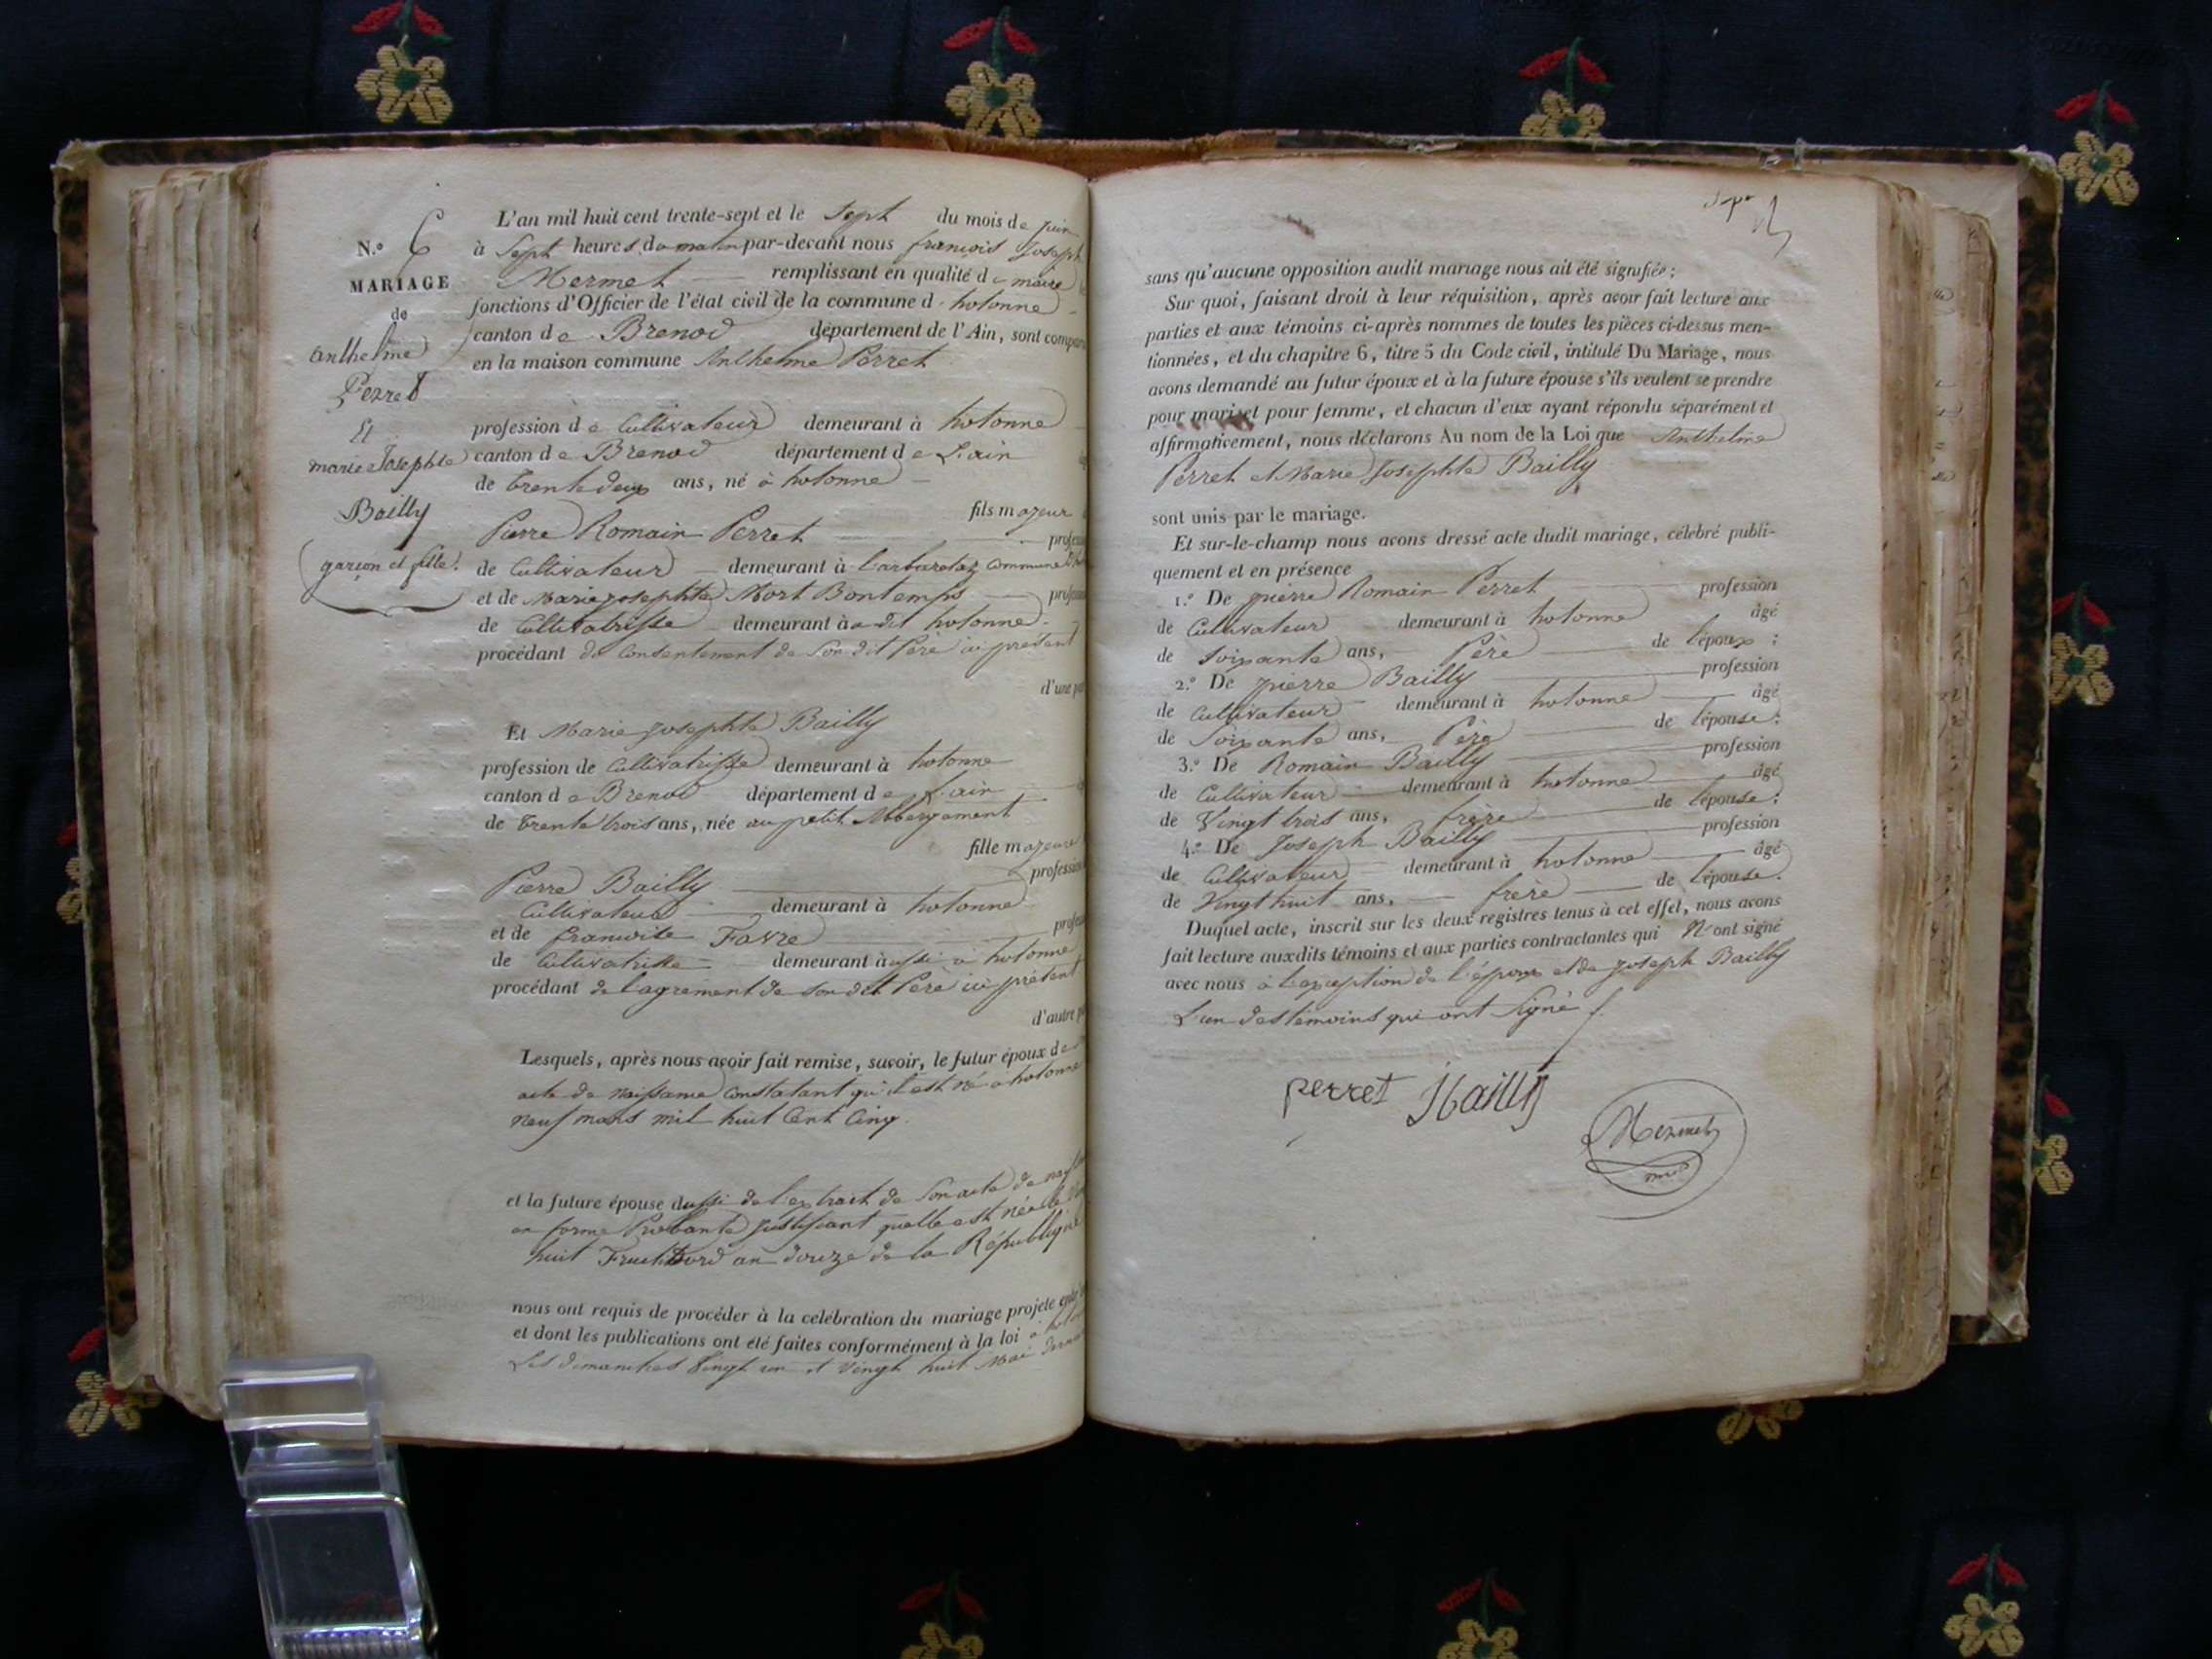 N.º 6
MARIAGE
de
Anthelme
Perret
Et
marie Josephte
Bailly
garçon et fille.
L'an mil huit cent trente-sept et le sept du mois de juin
à sept heures du matin par-devant nous françois Joseph
Mermet remplissant en qualité de maire
fonctions d'Officier de l'état civil de la commune d. hotonne
canton de Brenod département de l'Ain, sont compar
en la maison commune Anthelme Perret
profession de Cultivateur demeurant à hotonne
canton de Brenod département de L'ain
de trente deux ans, né à hotonne
fils majeur
Pierre Romain Perret profess
de Cultivateur demeurant à commune
et de Marie josephte Mort Bontemps profess
de Cultivatrisse demeurant à dit hotonne
procédant du Consentement de son dit Père ici présent
d'une pa
Et Marie josephte Bailly
profession de Cultivatrisse demeurant à hotonne
canton de Brenod département de L'ain
de trente trois ans, née au petit Abbergement
fille majeure
Pierre Bailly profession
Cultivateur demeurant à hotonne
et de françoise Favre profess
de Cultivatrisse demeurant aussi à hotonne
procédant de l'agrement de son dit Père ici présent
d'autre p
Lesquels, après nous avoir fait remise, savoir, le futur époux de
acte de naissance constatant qu'il est né a hotonne
neuf mars mil huit Cent Cinq.
et la future épouse aussi de l'extrait de son acte de nais
en forme Probante justifiant quelle est née le
huit Fructidord an douze de la République
nous ont requis de procéder à la celébration du mariage projeté entr
et dont les publications ont été faites conformément à la loi à hoto
Les dimanches vingt un et vingt huit Mai dernie
sans qu'aucune opposition audit mariage nous ait été signifiée;
Sur quoi, faisant droit à leur réquisition, après avoir fait lecture aux
parties et aux témoins ci-après nommes de toutes les pièces ci-dessus men-
tionnées, et du chapitre 6, titre 5 du Code civil, intitulé Du Mariage, nous
avons demandé au futur époux et à la future épouse s'ils veulent se prendre
pour mari et pour femme, et chacun d'eux ayant répondu séparément et
affirmativement, nous déclarons Au nom de la Loi que Anthelme
Perret et Marie Josephte Bailly
sont unis par le mariage.
Et sur-le-champ nous avons dressé acte dudit mariage, célébré publi-
quement et en présence
1.º De pierre Romain Perret profession
de Cultivateur demeurant à hotonne âgé
de soixante ans, Père de l'époux;
2.º De pierre Bailly profession
de Cultivateur demeurant à hotonne âgé
de soixante ans, Père de l'épouse;
3.º De Romain Bailly profession
de Cultivateur demeurant à hotonne âgé
de Vingt trois ans, frère de l'épouse;
4.º De Joseph Bailly profession
de Cultivateur demeurant à hotonne âgé
de Vingt huit ans, frère de l'épouse.
Duquel acte, inscrit sur les deux registres tenus à cet effet, nous avons
fait lecture auxdits témoins et aux parties contractantes qui N'ont signé
avec nous à l'exception de l'époux et de joseph Bailly
L'un des témoins qui ont signé
perret Bailly
Mermet